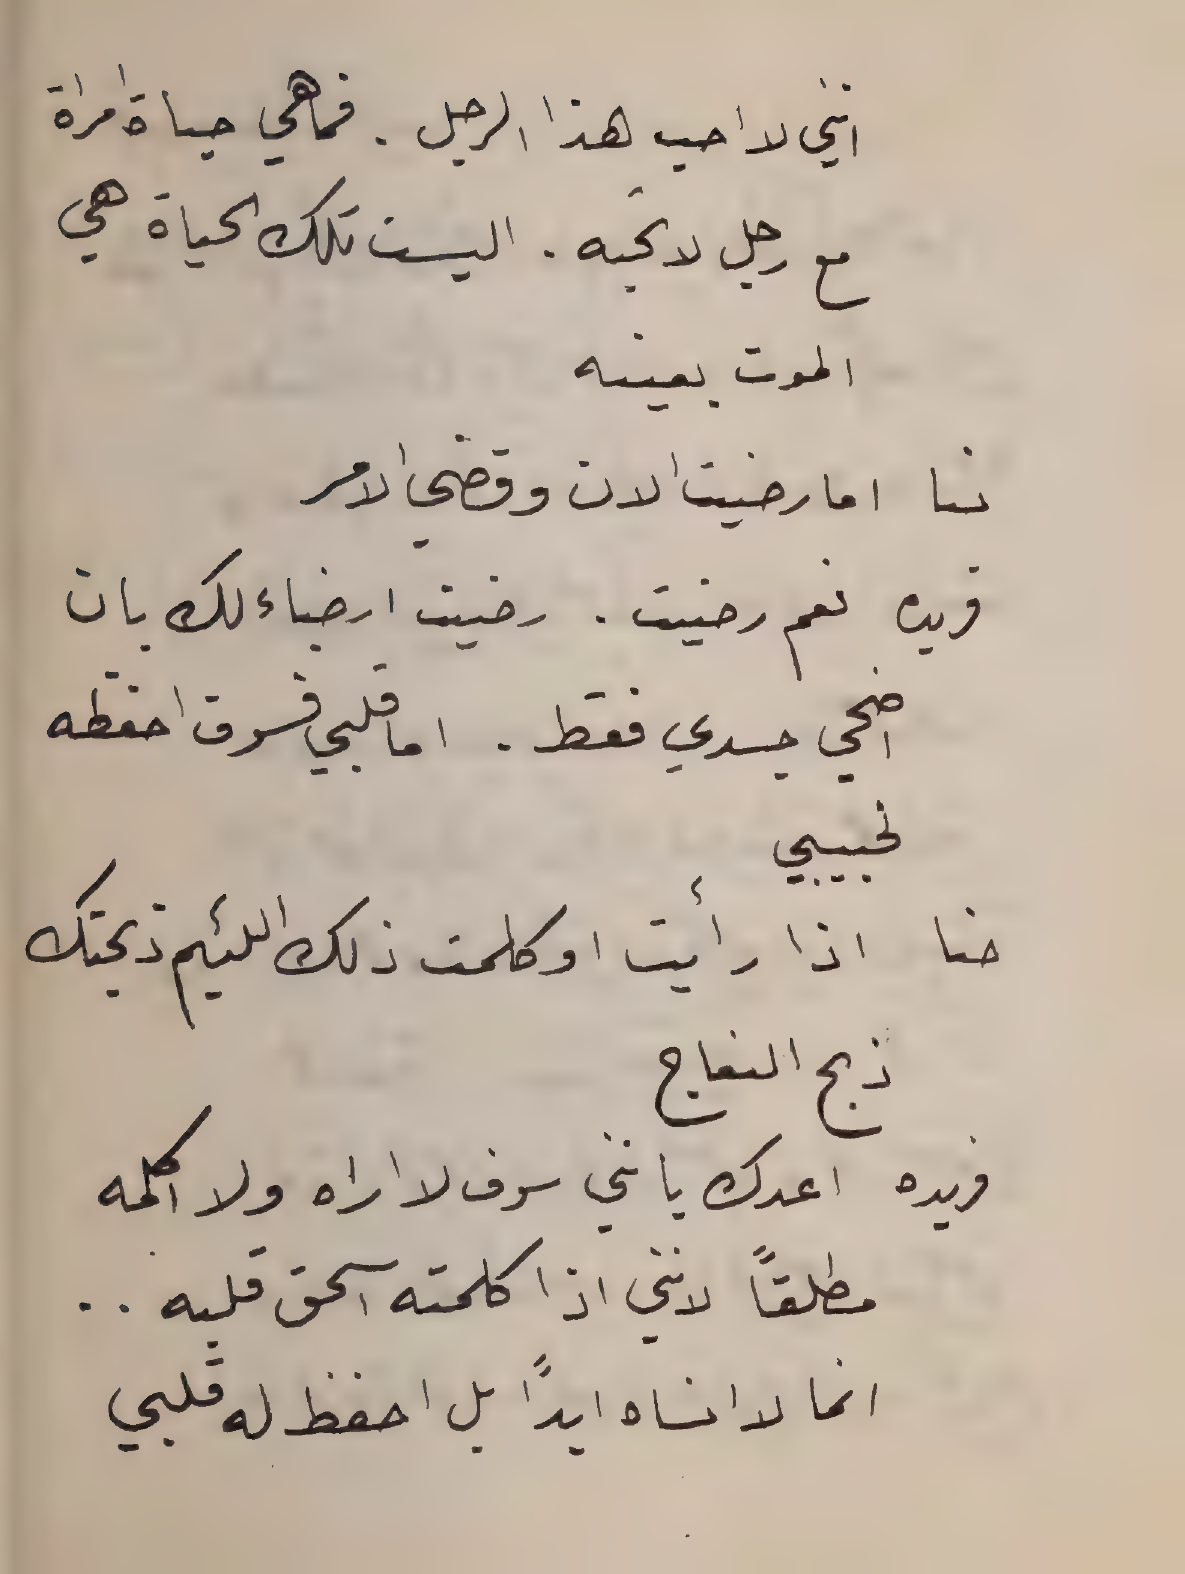 انني لا احب هذا الرجل . فما هي حياة امراة
مع رجل لا تحبه . اليست تلك الحياة هي
الموت بعينه
حنا اما رضيت الان وقضي الامر
فريده نعم رضيت . رضيت ارضاء لك بان
اضحي جسدي فقط . اما قلبي فسوف احفظه
لحبيبي
حنا اذا رأيت او كلمت ذلك اللئيم ذبحتك
ذبح النعاج
فريده اعدك بانني سوف لا اراه ولا اكلمه
مطلقاً لانني اذا كلمته اسحق قلبه ..
انما لا انساه ابداً بل احفظ له قلبي